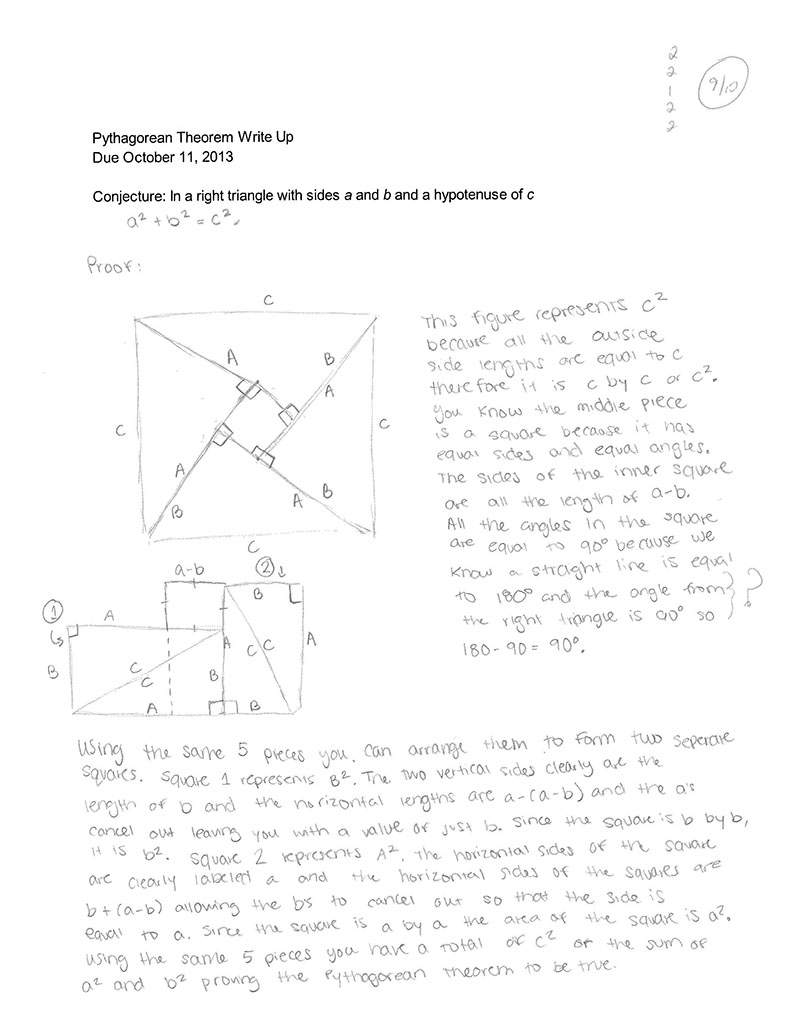 2
2
1
2
2
9/10
Pythagorean Theorem Write Up
Due October 11, 2013
Conjecture: In a right triangle with sides a and b and a hypotenuse of c
a² + b² = c².
Proof:
C
A
B
A
C
C
A
B
A
B
C
This figure represents c²
because all the outside
side lengths are equal to c
therefore it is c by c or c².
You know the middle piece
is a square because it has
equal sides and equal angles.
The sides of the inner square
are all the length of a-b.
All the angles in the square
are equal to 90° because we
know a straight line is equal
to 180° and the angle from
the right triangle is 90° so
180-90 = 90°.
?
a-b
②↓
B
①
A
A
A
C
C C
B
C
B
A
B
Using the same 5 pieces you can arrange them to form two seperate
squares. Square 1 represents B². The two vertical sides clearly are the
length of b and the horizontal lengths are a-(a-b) and the a's
cancel out leaving you with a value of just b. Since the square is b by b,
it is b². Square 2 represents A². The horizontal sides of the square
are clearly labeled a and the horizontal sides of the squares are
b+(a-b) allowing the b's to cancel out so that the side is
equal to a. Since the square is a by a the area of the square is a².
Using the same 5 pieces you have a total of c² or the sum of
a² and b² proving the Pythagorean Theorem to be true.